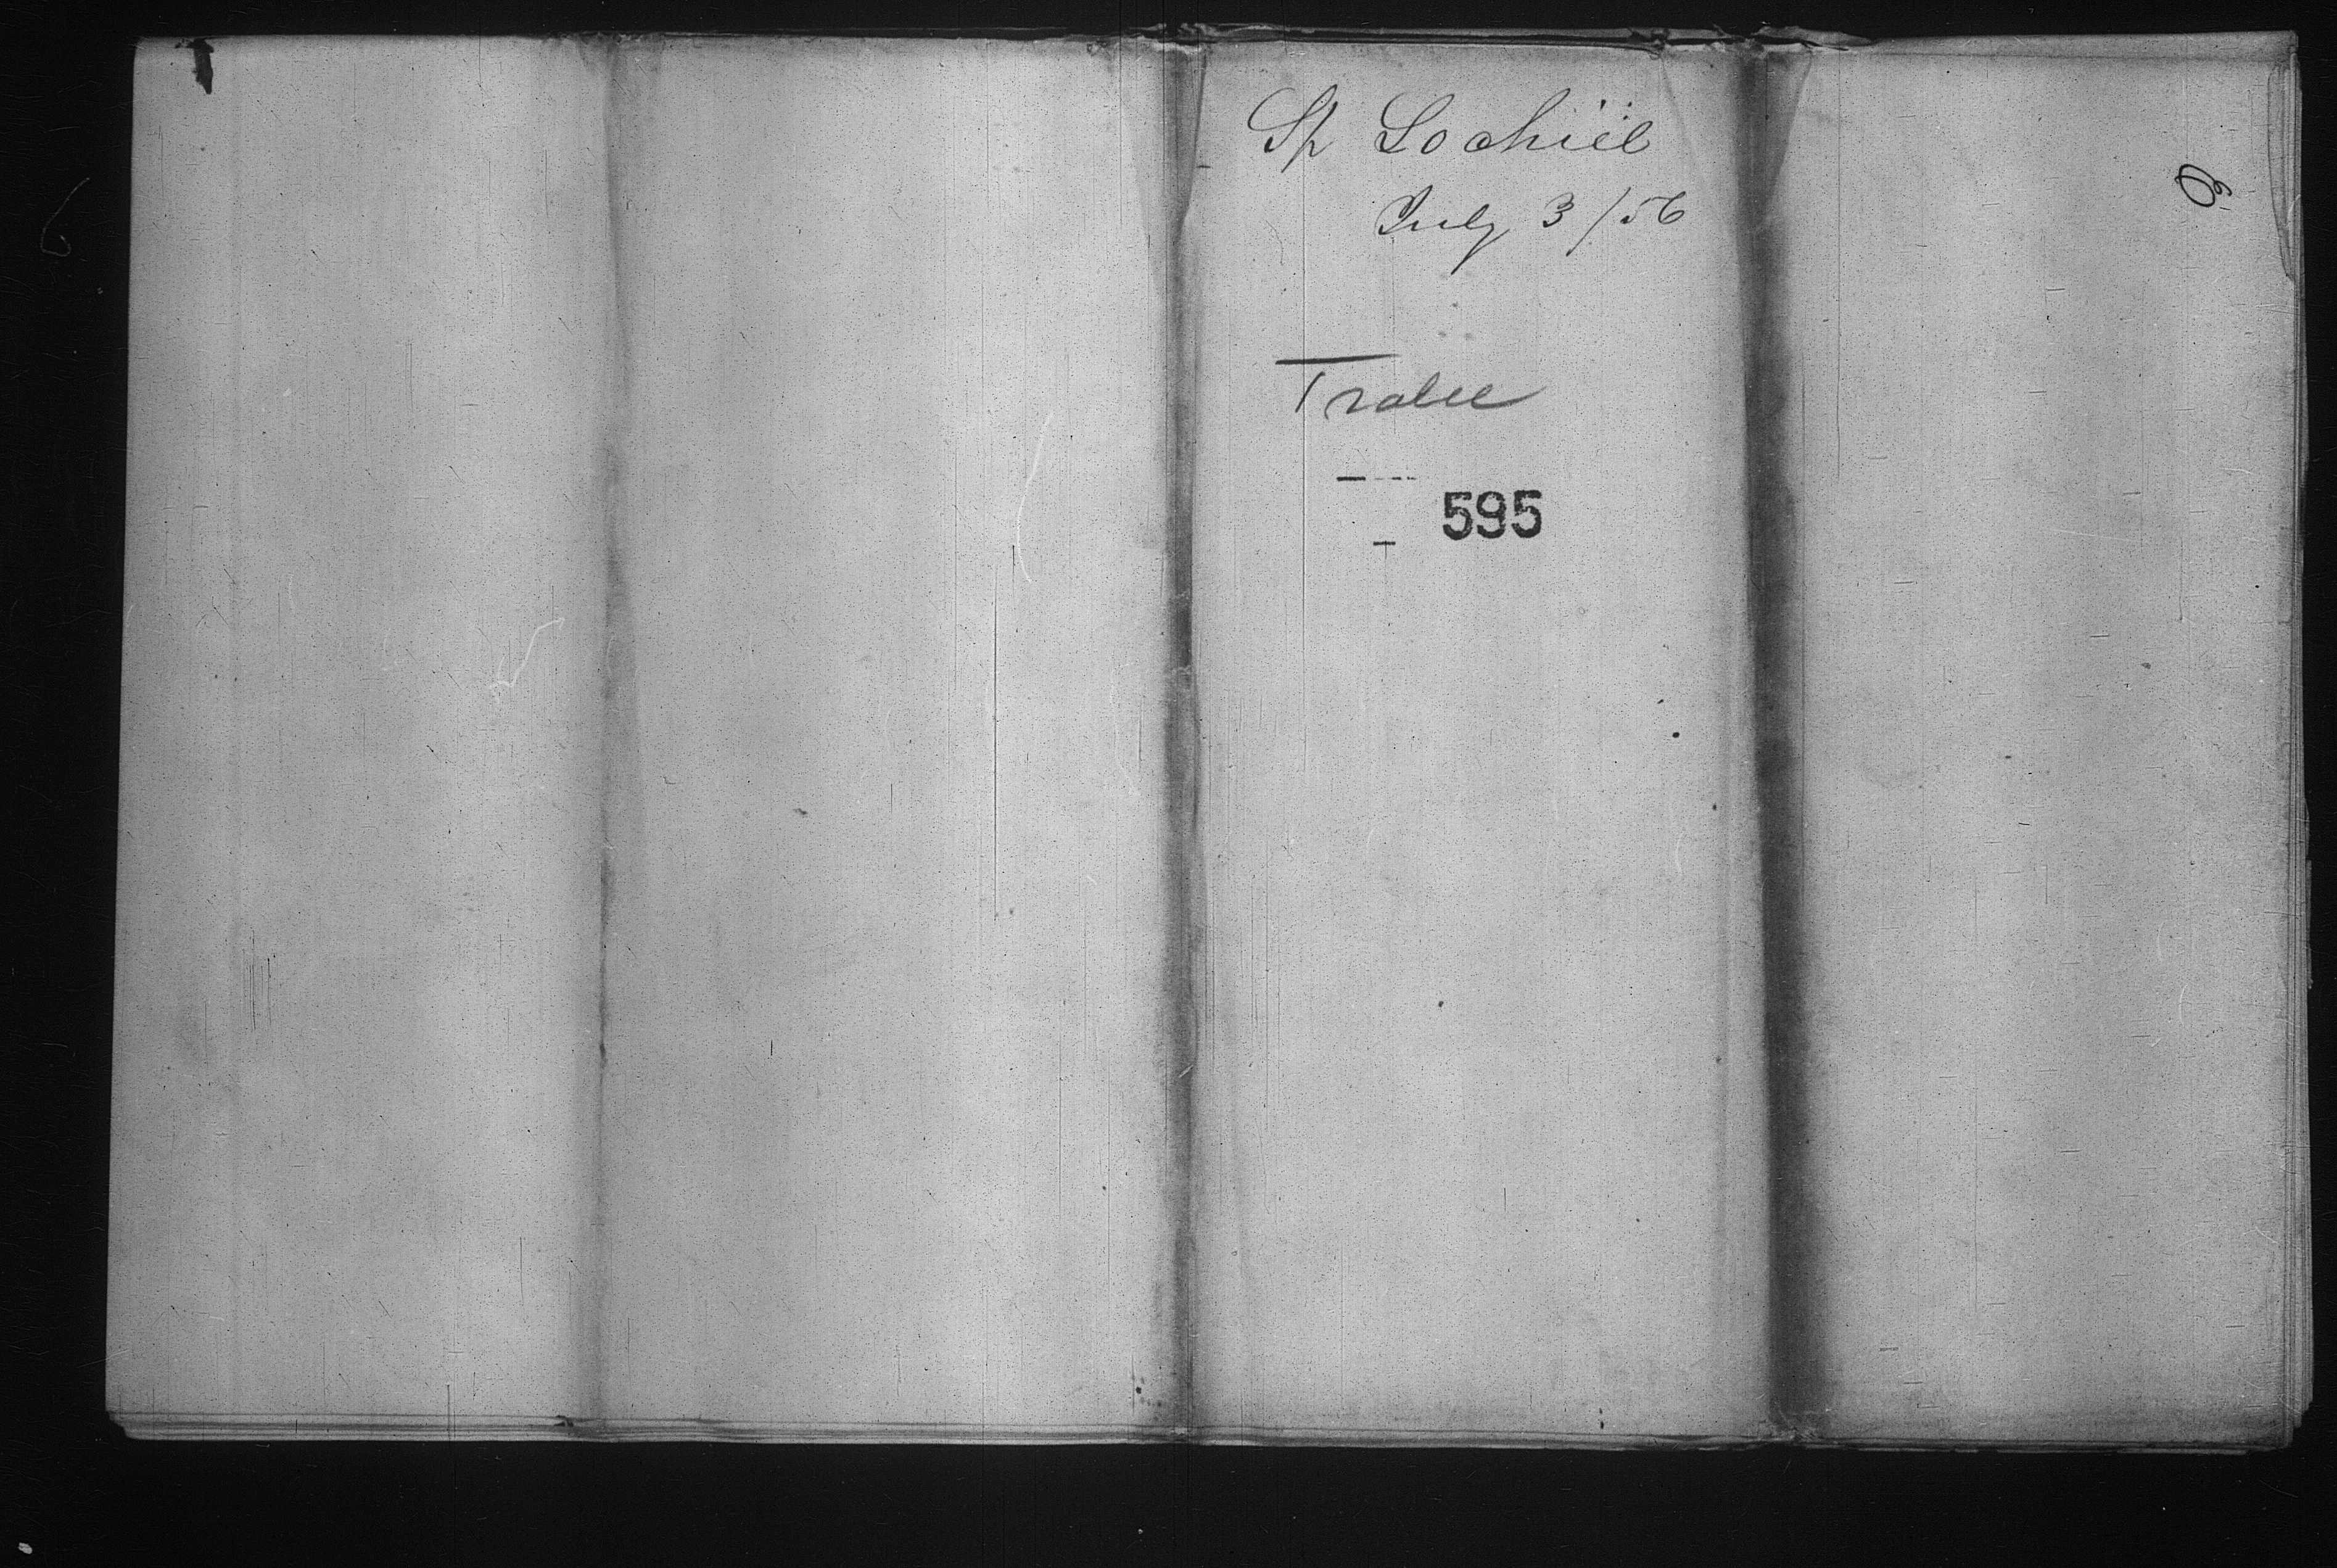 Sp Lochiel
July 3/56
Tralee
595